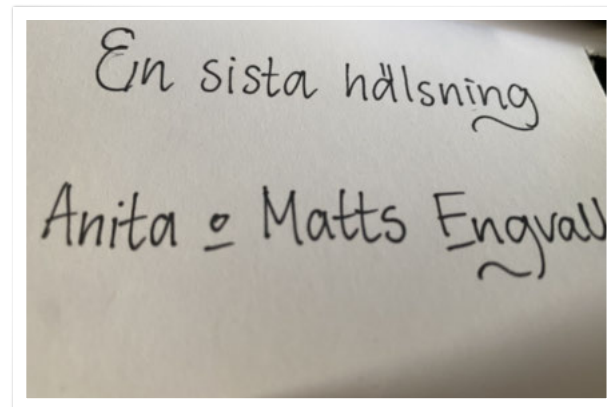 En sista hälsning
Anita o Matts Engvall